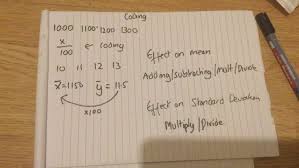 Coding
1000 1100 1200 1300
x/100 ← coding
10 11 12 13
x̄ = 1150 ȳ = 11.5
x100
Effect on mean
Adding/subtracting/Mult/Divide
Effect on Standard Deviation
Multiply/Divide